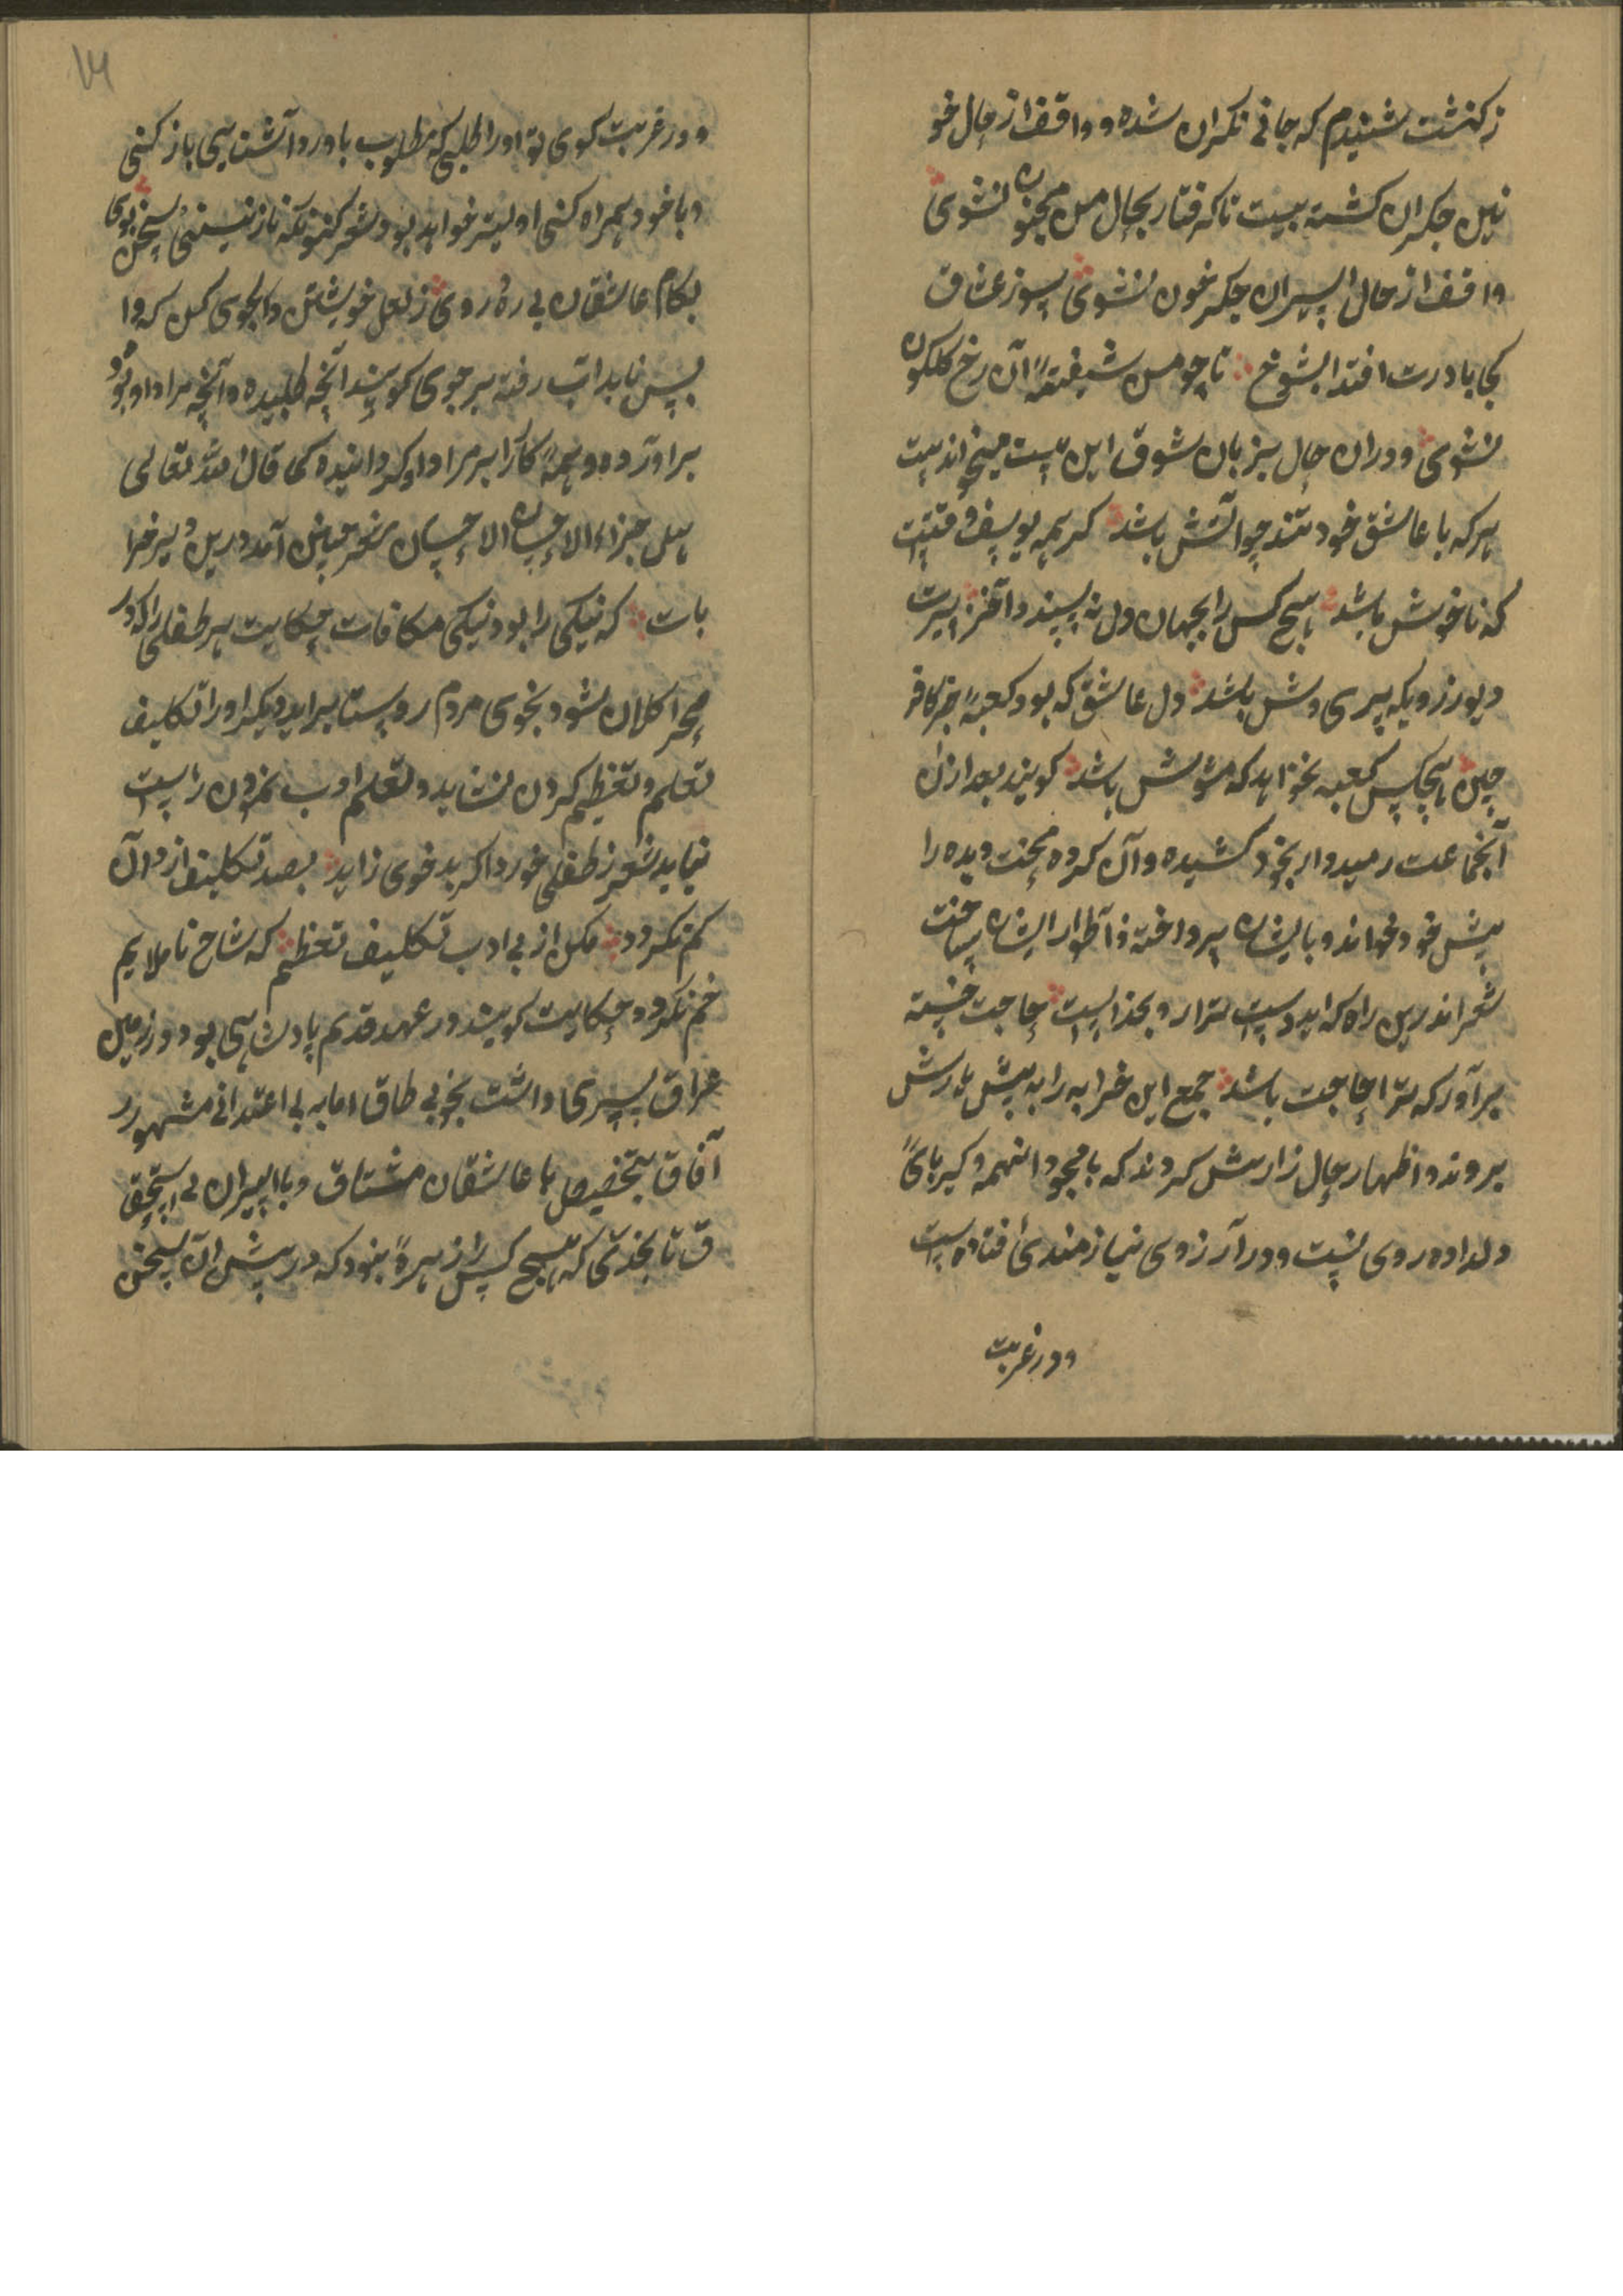 زکذشت شنیدم که جانی نکران شده و واقف از حال خو
نین جکران کشته بیت تا گرفتار بحال من مجنون نشوی
واقف از حال اسیران جکر خون نشوی سوز عشاق
کجا بادرت افتد ای شوخ تا چو من شیفتهٔ آن رخ کلکون
نشوی و دران حال بزبان شوق این بیت میخواند بیت
هر که با عاشق خود تند چو آتش باشد کر همه یوسف وقتست
که ناخوش باشد هیچ کس را بجهان دل نه پسندد آخر سیرت
دیو زرویکه پری وش باشد دل عاشق که بود کعبه جز کافر
چین هیچکس کعبه نخواهد که مشوش باشد کویند بعد ازان
آنجماعت رمیدوار بخود کشیده و آن کروه محنت دیده را
پیش خود خواند و بایشان پرداخته و آطوار ایشان ساخت
شعر اندرین راه که اید دست ترا رو بخداست حاجت خسته
برآور که ترا حاجت باشد جمع این خرابه را به پیش پدرش
بروند و اظهار حال زارش کردند که با وجود اینهمه و کبریائی
دلداده روی تست و در آرزوی نیازمندی افتاده است
و در غربت
و در غربت کوی تو او را طلبی که مطلوب با ورد آشنایی باز کنی
و با خود همراه کنی اولیتر خواهد بود شعر کنونکه نازنینی سخن بوی
بکام عاشقان بی ره روی ز لعل خویشتن دلجوی کن که وا
پس ناید اب رفته بر جوی کویند آنچه طلبیده و آنچه مراد او بود
براورده و همه کار را بر مراد او کردانیده کما قال الله تعالی
هل جزاء الاحسان الا الاحسان شعر چنین آمد درین دیر خرا
بات که نیکی را بود نیکی مکافات حکایت هر طفلی را که در
صحرا کلان شود بخوی مردم روستا براید دیکر او را تکلیف
تعلم و تعظیم کردن نشاید و تعلیم ادب نمودن راست
نیاید شعر ز طفلی خورد اکر بد خوی زاید بصد تکلیف از و آن
کم نکردد مکن از بی ادب تکلیف تعظیم که شاخ ناملایم
خم نکردد حکایت کویند در عهد قدیم پادشاهی بود در زمین
عراق پسری داشت بخوبی طاق اما به بی اعتدالی مشهور در
آفاق بتخصیص با عاشقان مشتاق و با اسیران بی استحقا
ق تا بحدی که هیچ کس را زهرهٔ نبود که در پیش ان سخن